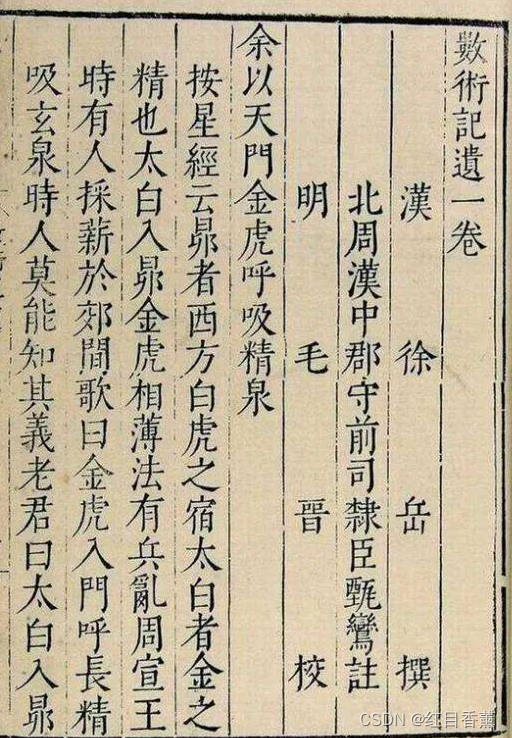 數術記遺一卷
漢 徐 岳 撰
北周漢中郡守前司隸臣甄鸞註
明 毛 晉 校
余以天門金虎呼吸精泉
按星經云昴者西方白虎之宿太白者金之
精也太白入昴金虎相薄法有兵亂周宣王
時有人採薪於郊間歌曰金虎入門呼長精
吸玄泉時人莫能知其義老君曰太白入昴
CSDN @红目香薰